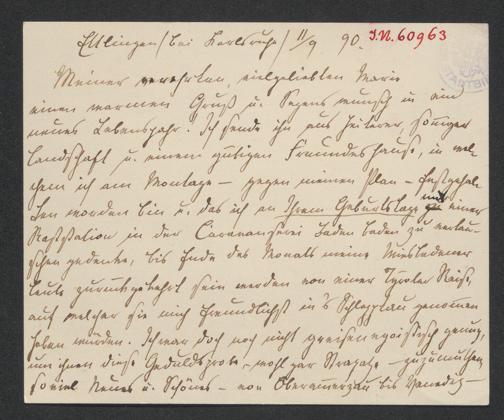 Ettlingen (bei Karlsruhe) 11/9 90. I.N. 60963
Meiner verehrten, vielgeliebten Marie
einen warmen Gruß u. Segenswunsch in ein
neues Lebensjahr. Ich sende ihn aus heiterer, sonniger
Landschaft u. einem gütigen Freundeshause, in wel-
chem ich am Montage – gegen meinen Plan – festgehal-
ten worden bin u. das ich an Ihrem Geburtstage mit einer
Raststation in der Caravanserei Baden Baden zu vertau-
schen gedenke, bis Ende des Monats meine Wiesbadener
Leute zurückgekehrt sein werden von einer Tyroler Reise,
auf welcher sie mich freundlichst in's Schlepptau genommen
haben würden. Ich war doch noch nicht greisenegoistisch genug,
um ihnen diese Geduldsprobe – wohl gar Strapatze – zuzumuthen,
so viel Neues u. Schönes – von Oberammergau bis Venedig –